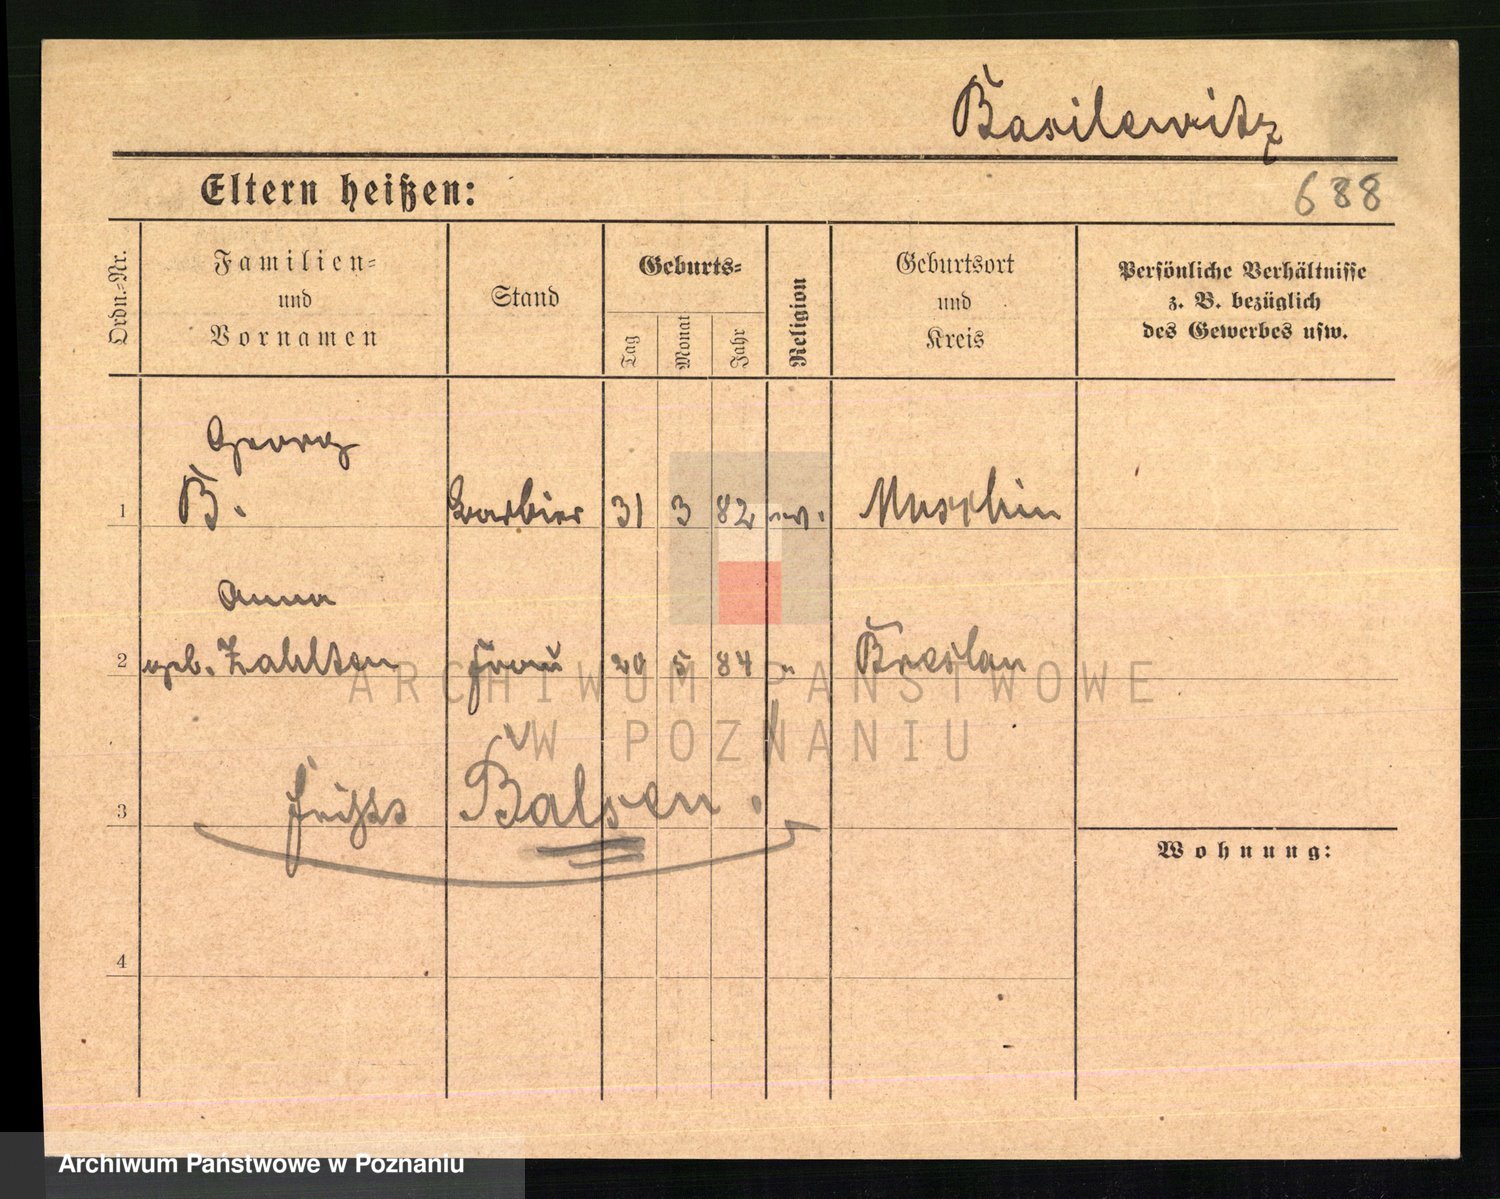 Basilewitz
Eltern heißen:
688
Ordn.-Nr.
Familien-
und
Vornamen
Stand
Geburts-
Tag
Monat
Jahr
Religion
Geburtsort
und
Kreis
Persönliche Verhältnisse
z. B. bezüglich
des Gewerbes usw.
Georg
1 B. Barbier 31 3 82 ev. Moschin
Anna
2 geb. Zahlten Frau 29 5 84 " Breslau
ARCHIWUM PAŃSTWOWE
W POZNANIU
3 Balsen.
Wohnung:
4
Archiwum Państwowe w Poznaniu